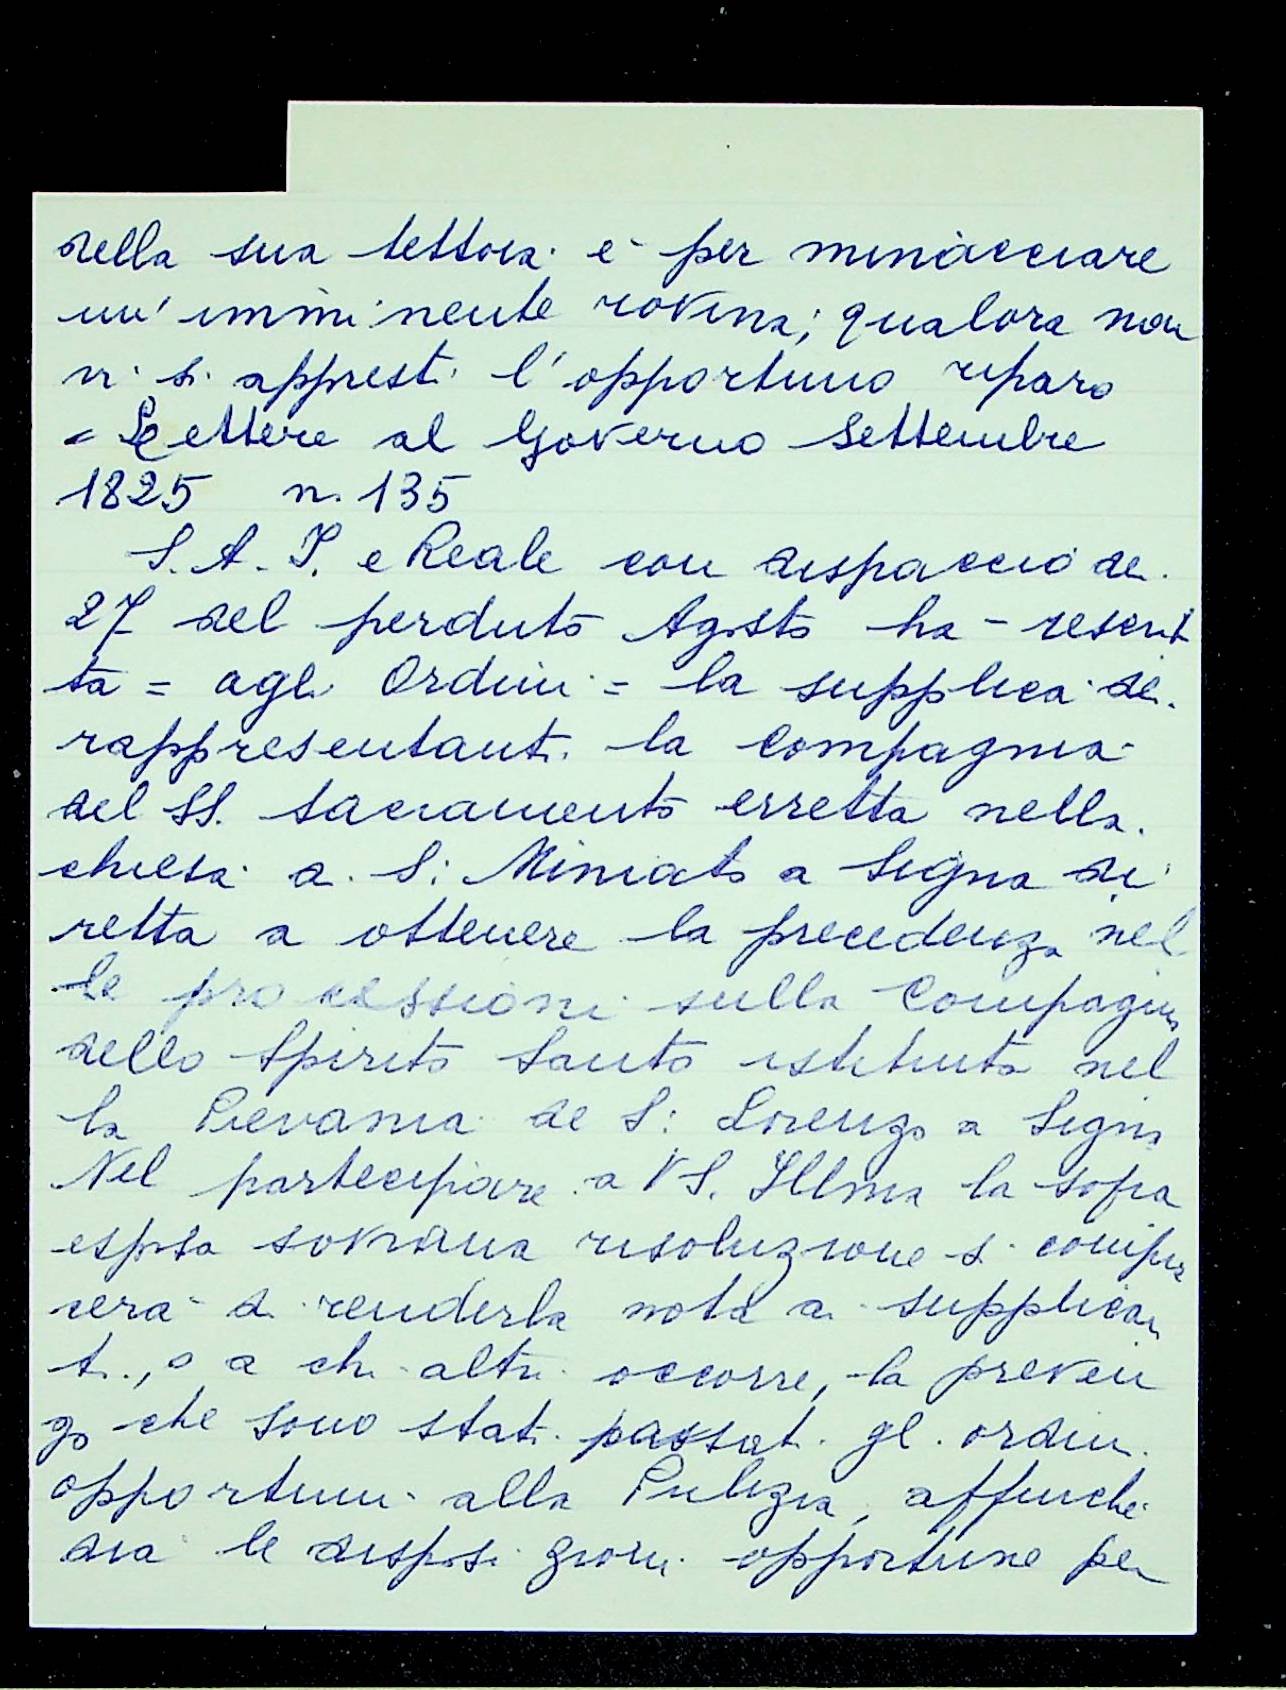 della sua tettoia è per minacciare
un'imminente rovina; qualora non
vi si appresti l'opportuno riparo
= Lettere al Governo Settembre
1825 n. 135
S. A. I. e Reale con dispaccio de
27 del perduto Agosto ha - rescrit
ta = agli Ordini = la supplica de
rappresentanti la Compagnia
del SS. Sacramento erretta nella
chiesa a S: Miniato a Signa di
retta a ottenere la precedenza nel
le processioni sulla Compagnia
dello Spirito Santo istituita nel
la Pievania de S: Lorenzo a Signa
Nel partecipare a VS. Illma la sopra
esposta sovrana risoluzione si compia
cerà di renderla nota ai supplican
ti, o a chi altri occorre, la preven
go che sono stati passati gl. ordini
opportuni alla Pulizia, affinché
dia le disposizioni opportune per